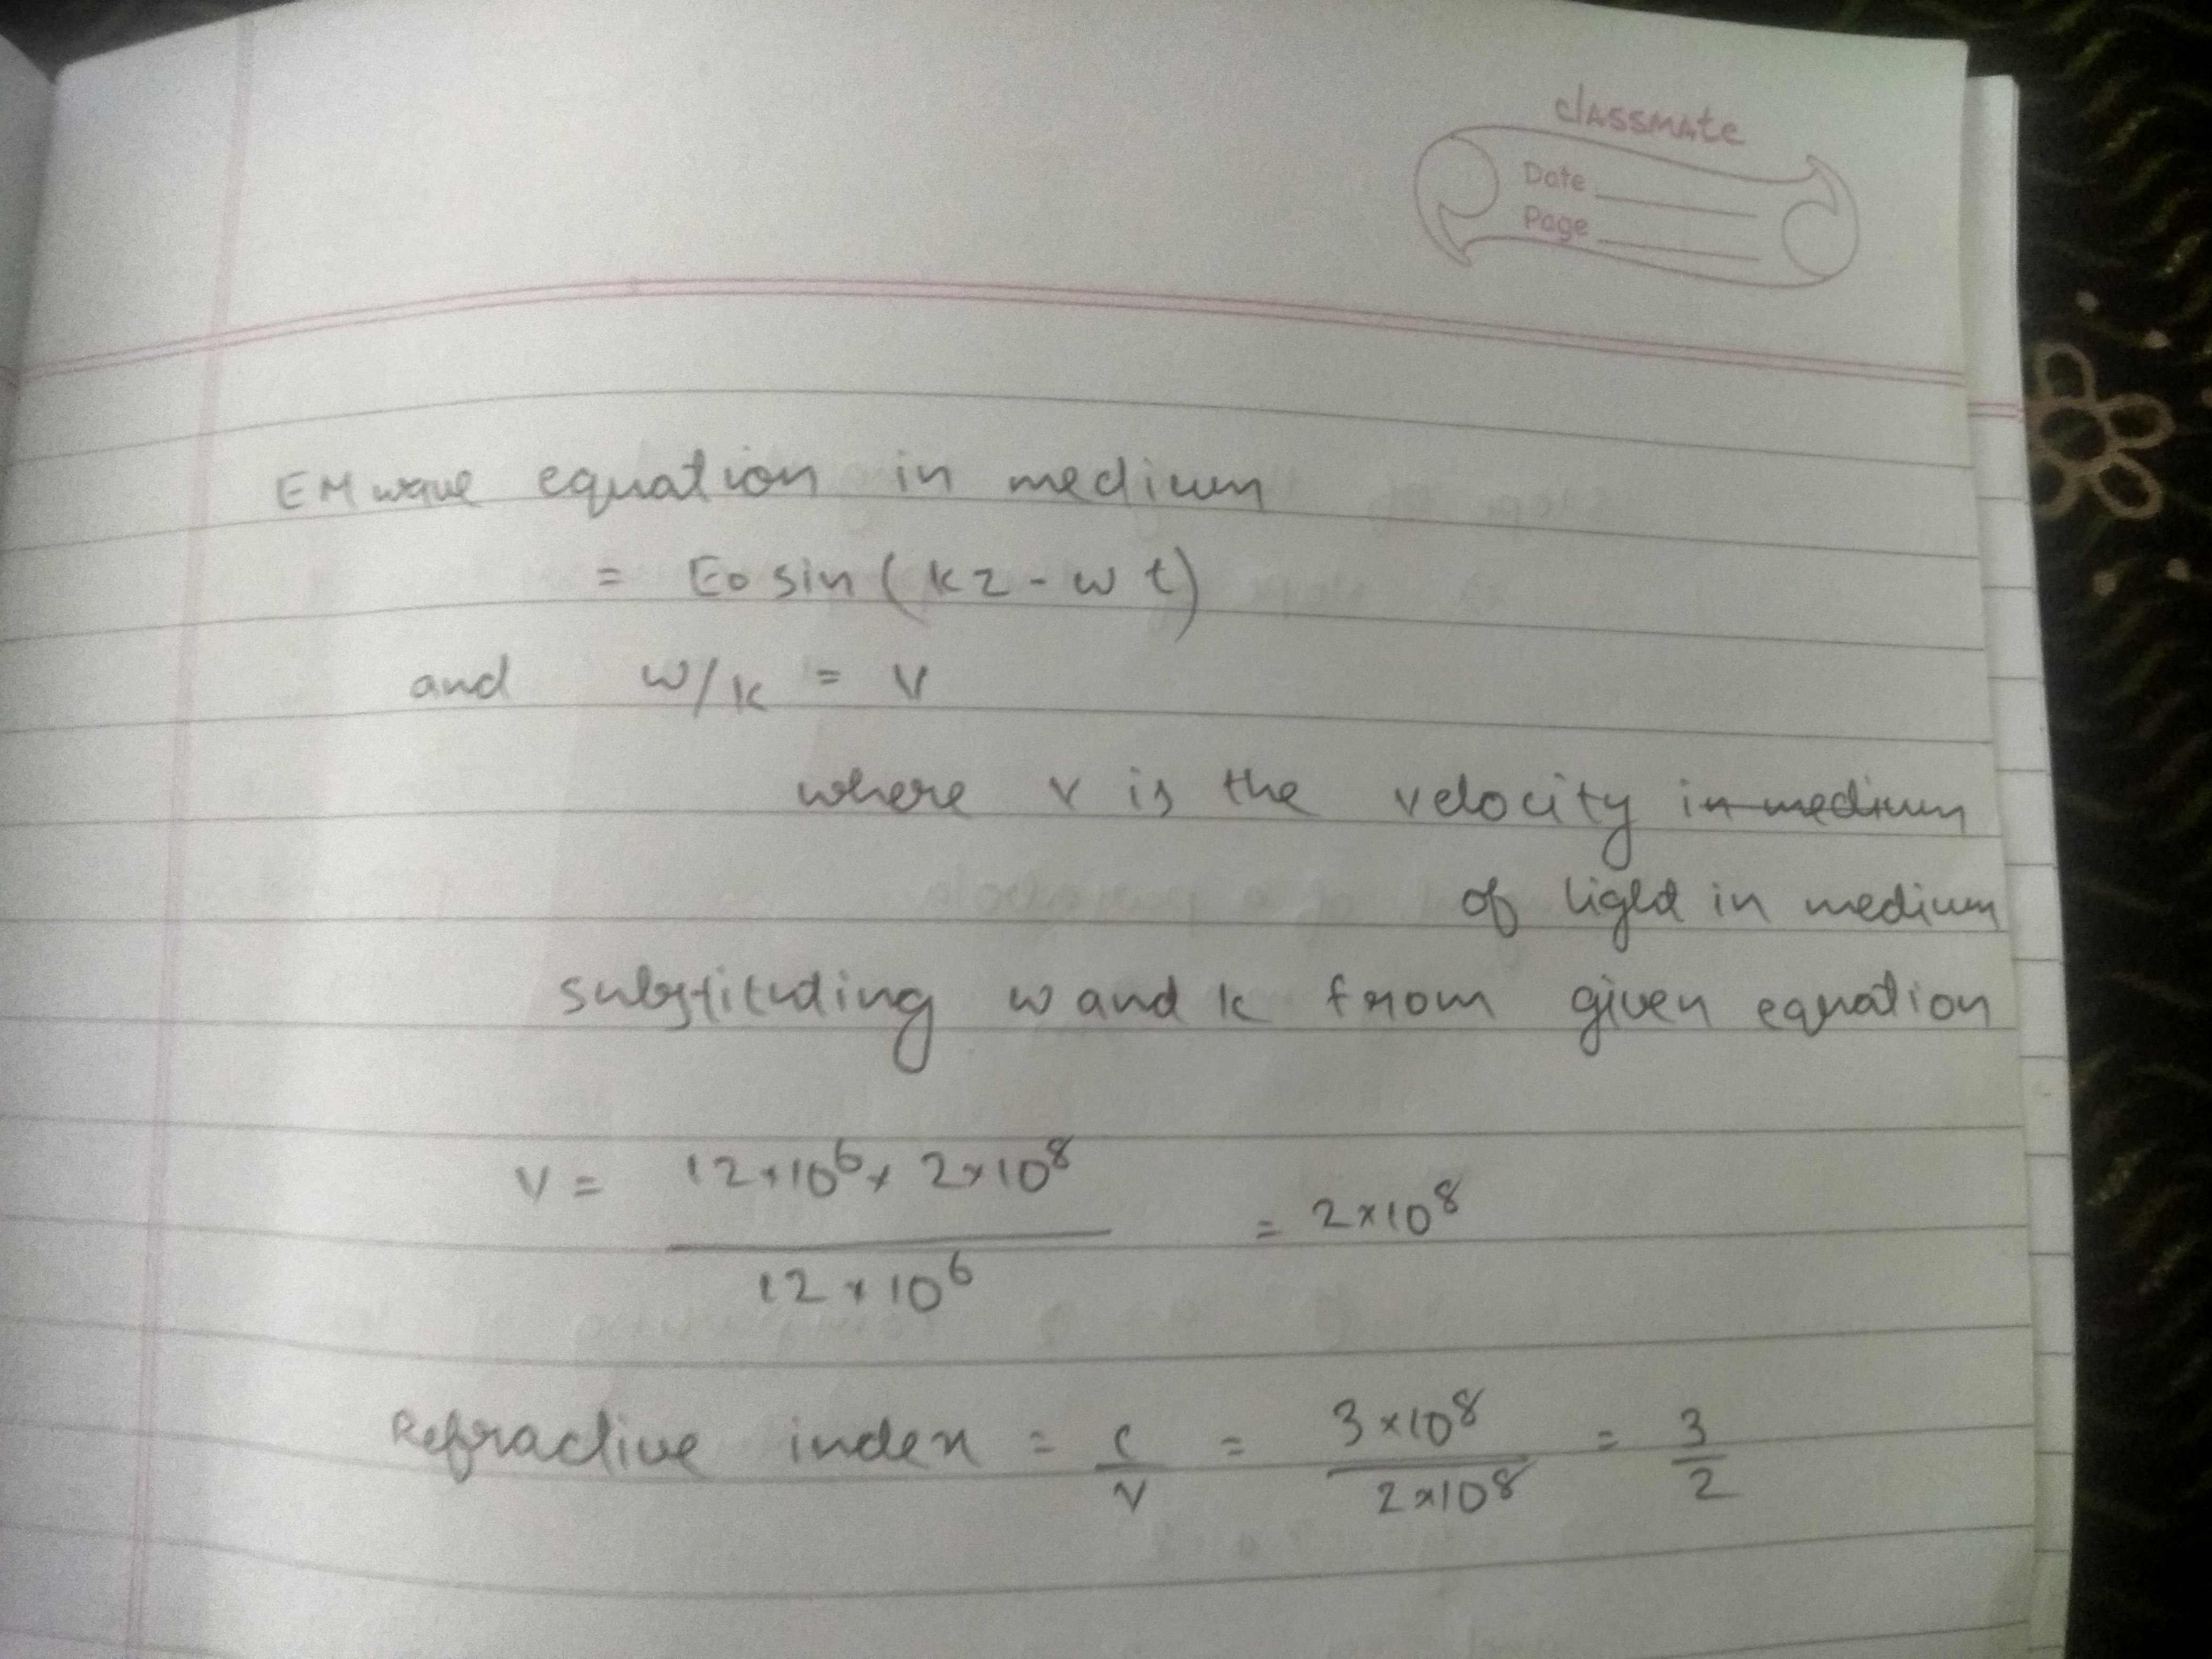 classmate
Date
Page
EM wave equation in medium
= E0 sin (kz - wt)
and w/k = v
where v is the velocity in medium
of light in medium
substituting w and k from given equation
v = 12×10^6 × 2×10^8 / 12×10^6 = 2×10^8
Refractive index = c/v = 3×10^8 / 2×10^8 = 3/2